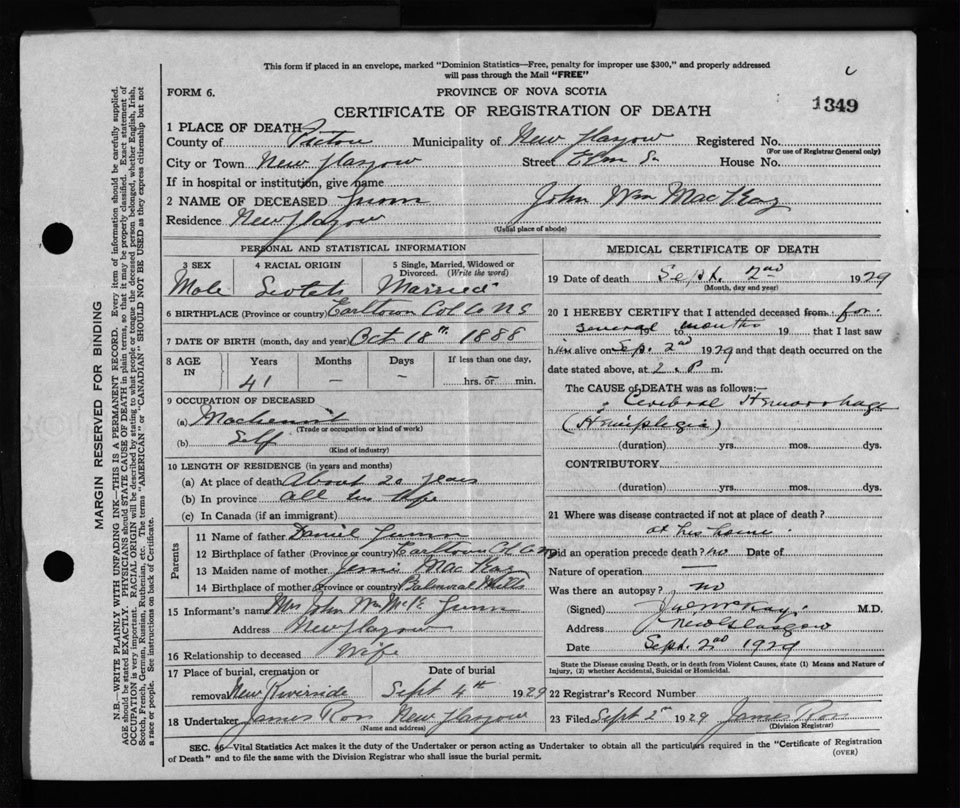 This form if placed in an envelope, marked "Dominion Statistics—Free, penalty for improper use $300," and properly addressed
will pass through the Mail "FREE"
FORM 6.
PROVINCE OF NOVA SCOTIA
1349
CERTIFICATE OF REGISTRATION OF DEATH
1 PLACE OF DEATH
County of Pictou Municipality of New Glasgow Registered No.
(For use of Registrar General only)
City or Town New Glasgow Street Elm St House No.
If in hospital or institution, give name
2 NAME OF DECEASED Gunn John Wm MacKay
Residence New Glasgow
(Usual place of abode)
PERSONAL AND STATISTICAL INFORMATION
3 SEX 4 RACIAL ORIGIN 5 Single, Married, Widowed or Divorced. (Write the word)
Male Scotch Married
6 BIRTHPLACE (Province or country) Earltown Col Co NS
7 DATE OF BIRTH (month, day and year) Oct 18th 1888
8 AGE IN Years Months Days If less than one day,
41 — — hrs. or min.
9 OCCUPATION OF DECEASED
(a) Machinist
(Trade or occupation or kind of work)
(b) Self
(Kind of industry)
10 LENGTH OF RESIDENCE (in years and months)
(a) At place of death About 20 years
(b) In province all his life
(c) In Canada (if an immigrant)
Parents
11 Name of father Daniel Gunn
12 Birthplace of father (Province or country) Earltown Col Co NS
13 Maiden name of mother Jessie MacKay
14 Birthplace of mother (Province or country) Balmoral Mills
15 Informant's name Mrs John Wm McK Gunn
Address New Glasgow
16 Relationship to deceased Wife
17 Place of burial, cremation or removal New Riverside Date of burial Sept 4th 1929
18 Undertaker James Ross New Glasgow
(Name and address)
MEDICAL CERTIFICATE OF DEATH
19 Date of death Sept. 2nd 1929
(Month, day and year)
20 I HEREBY CERTIFY that I attended deceased from for
several months 19 to 19 that I last saw
him alive on Sep. 2nd 1929 and that death occurred on the
date stated above, at 2. P. m.
The CAUSE of DEATH was as follows:—
Cerebral Hemorrhage
(Hemiplegia)
(duration) yrs. mos. dys.
CONTRIBUTORY
(duration) yrs. mos. dys.
21 Where was disease contracted if not at place of death?
at his home
Did an operation precede death? no Date of
Nature of operation —
Was there an autopsy? no
(Signed) McKay M.D.
Address New Glasgow
Date Sept. 2nd 1929
State the Disease causing Death, or in death from Violent Causes, state (1) Means and Nature of Injury, (2) whether Accidental, Suicidal or Homicidal.
22 Registrar's Record Number
23 Filed Sept 2nd 1929 James Ross
(Division Registrar)
SEC. 46—Vital Statistics Act makes it the duty of the Undertaker or person acting as Undertaker to obtain all the particulars required in the "Certificate of Registration
of Death" and to file the same with the Division Registrar who shall issue the burial permit. (OVER)
MARGIN RESERVED FOR BINDING
N.B.—WRITE PLAINLY WITH UNFADING INK—THIS IS A PERMANENT RECORD. Every item of information should be carefully supplied.
AGE should be stated EXACTLY. PHYSICIANS should STATE CAUSE OF DEATH in plain terms, so that it may be properly classified. Exact statement of
OCCUPATION is very important. RACIAL ORIGIN will be described by stating to what people or tongue the deceased person belonged, whether English, Irish,
Scotch, French, German, Russian, Ruthenian, etc. The terms "AMERICAN" or "CANADIAN" SHOULD NOT BE USED as they express citizenship but not
a race or people. See Instructions on back of Certificate.